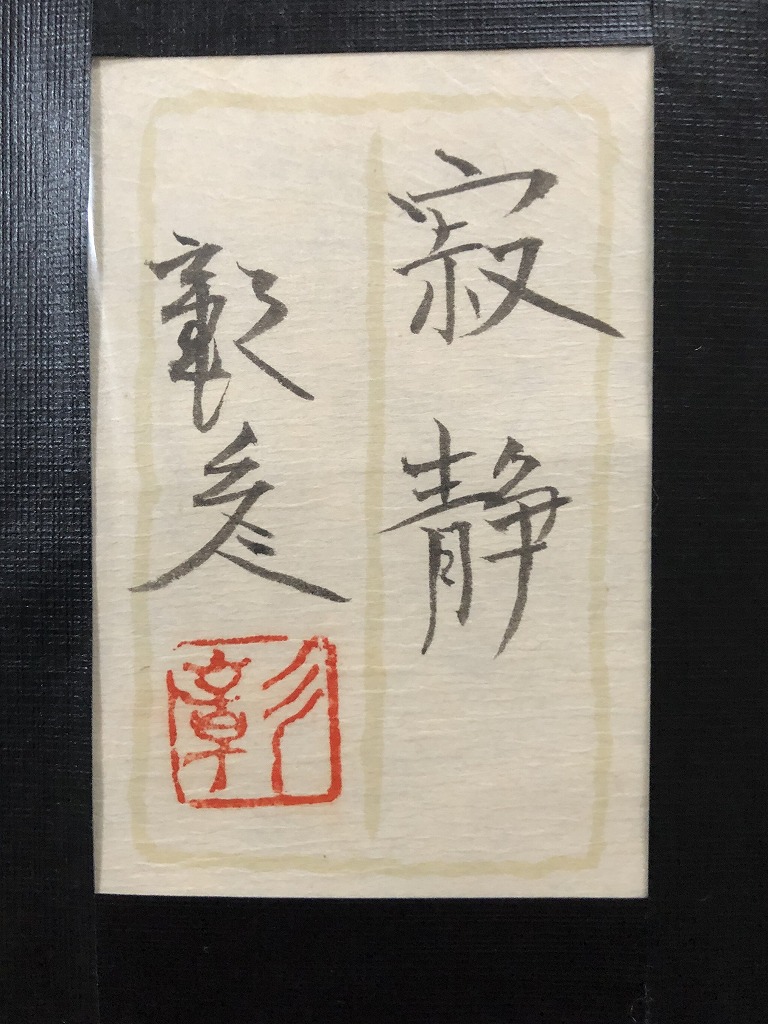 寂静
彰彦
彰